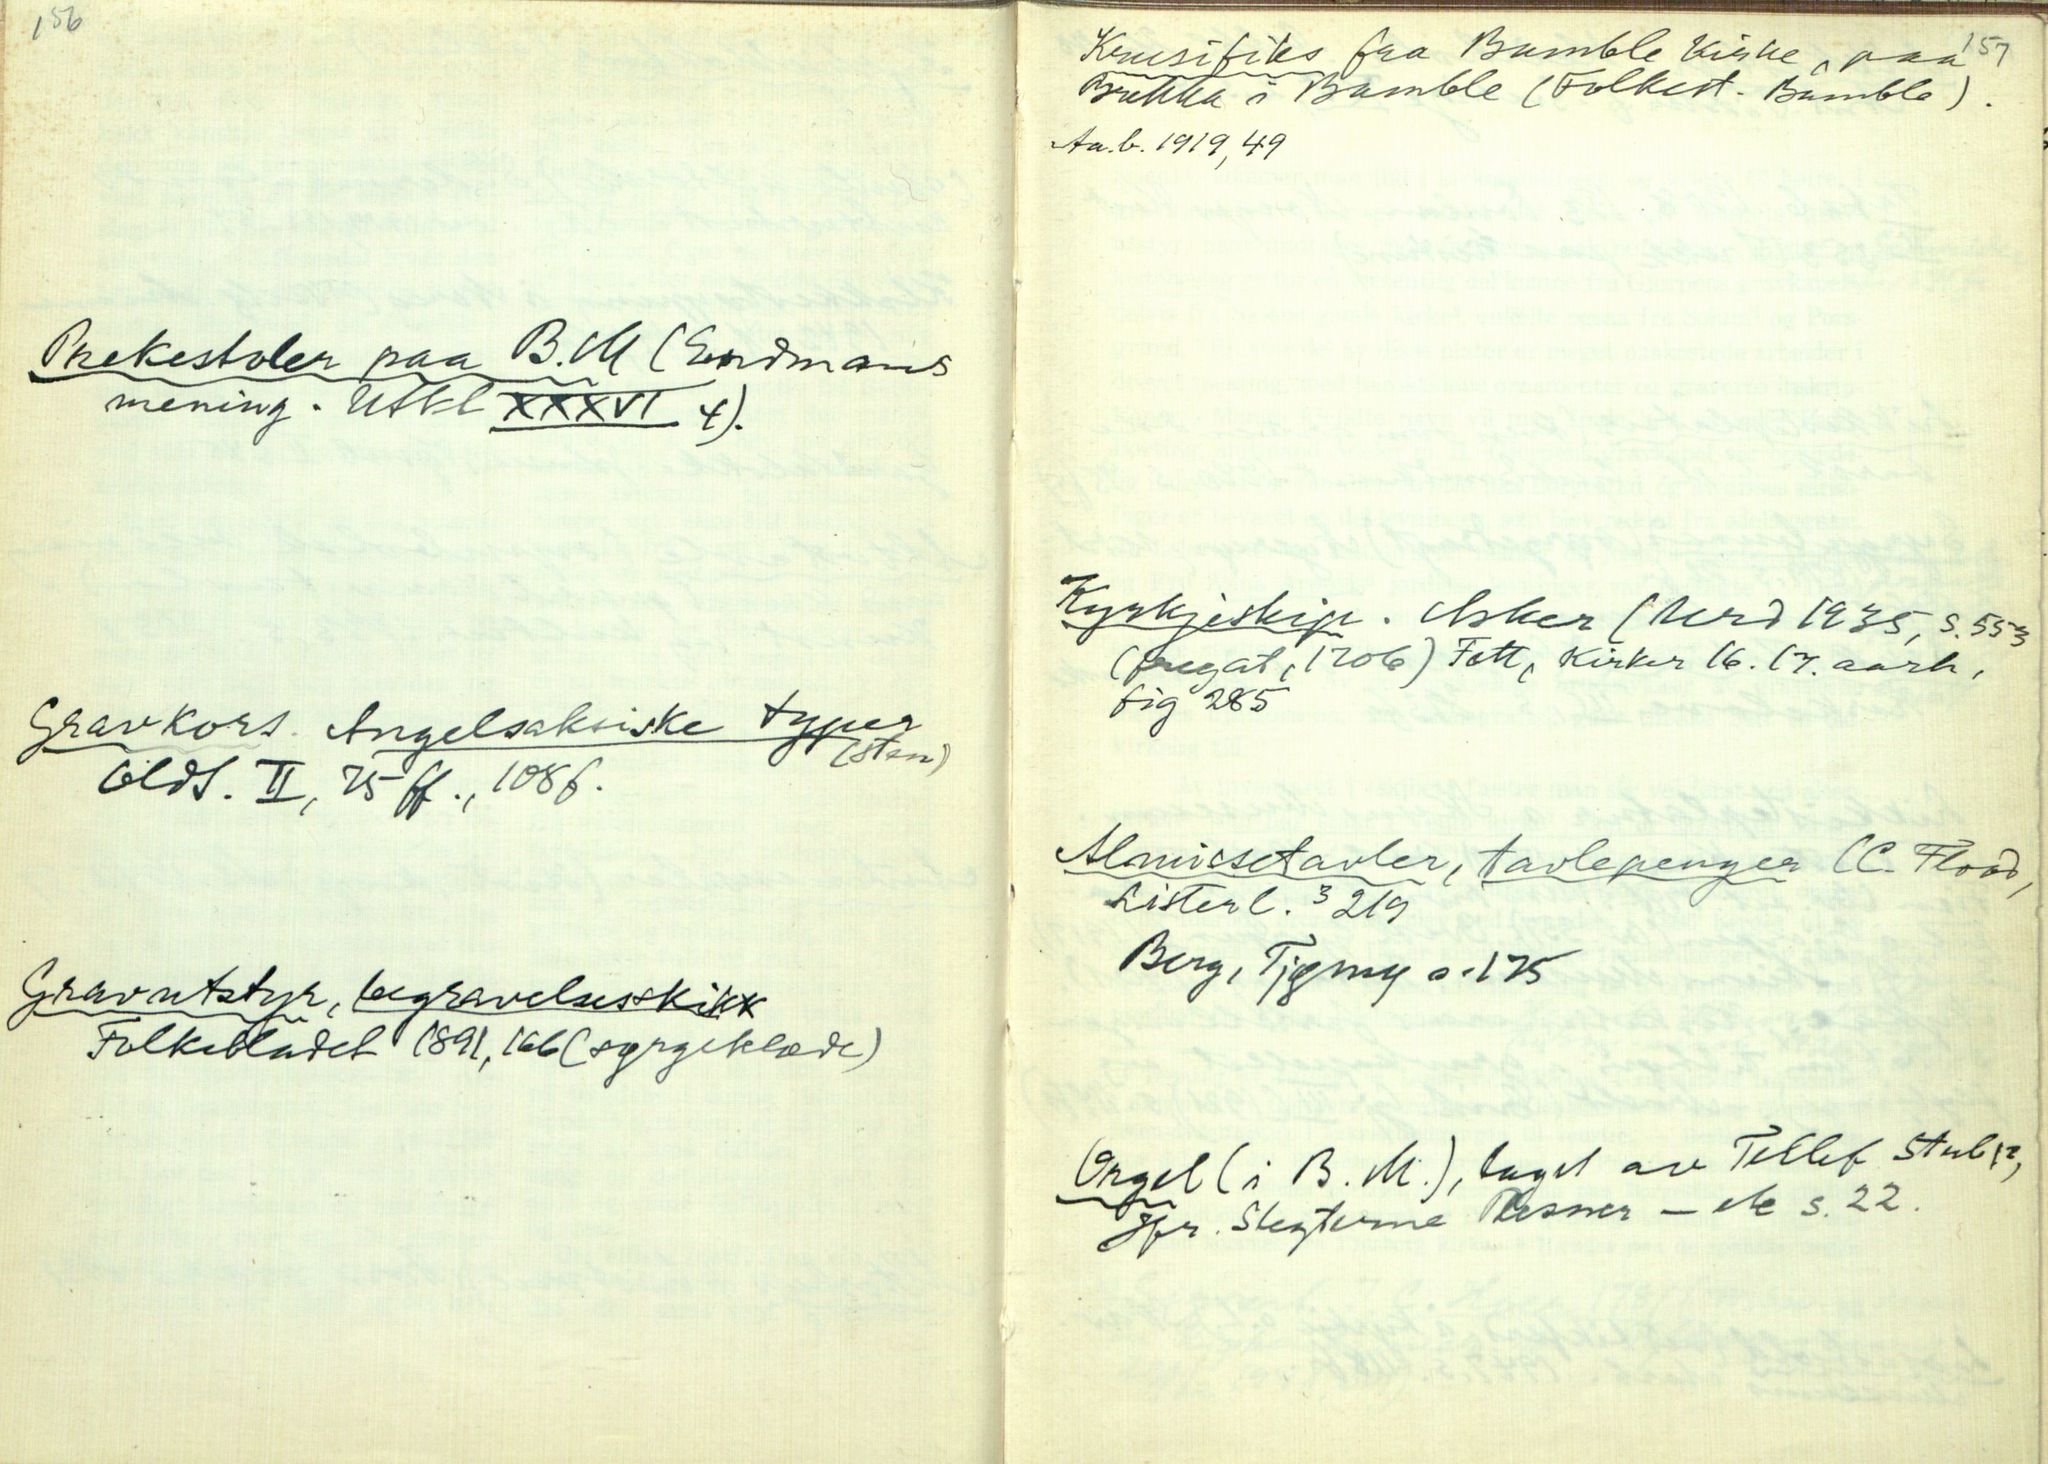 156
Prekestoler paa B.M (Erdmanns
mening. Utkl XXXVI 4).
Gravkors. Angelsaksiske typer
(sten)
Oldt. II, 75 ff., 108 f.
Gravutstyr, begravelsesskikk
Folkebladet 1891, 166 (sørgeklæde)
157
Krusifiks fra Bamble Kirke, paa
Brekka i Bamble (Folkest. Bamble).
Aa.b. 1919, 49
Kyrkjeskip. Asker (Urd 1935, s. 553
(fregat, 1706) Fett, Kirker 16. 17. aarh,
fig 285
Almissetavler, tavlepenger (C. Flood,
Listerl. 3 219
Berg, Tjømø s. 175
Orgel (i B.M.), laget av Tellef
Jfr. Slegterne Plesner — s. 22.